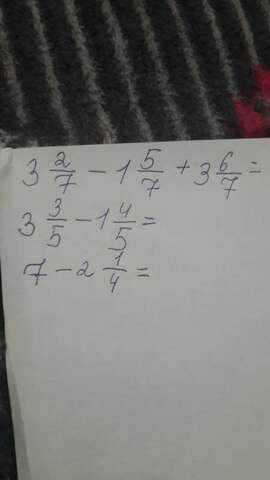 3 2/7 − 1 5/7 + 3 6/7 =
3 3/5 − 1 4/5 =
7 − 2 1/4 =